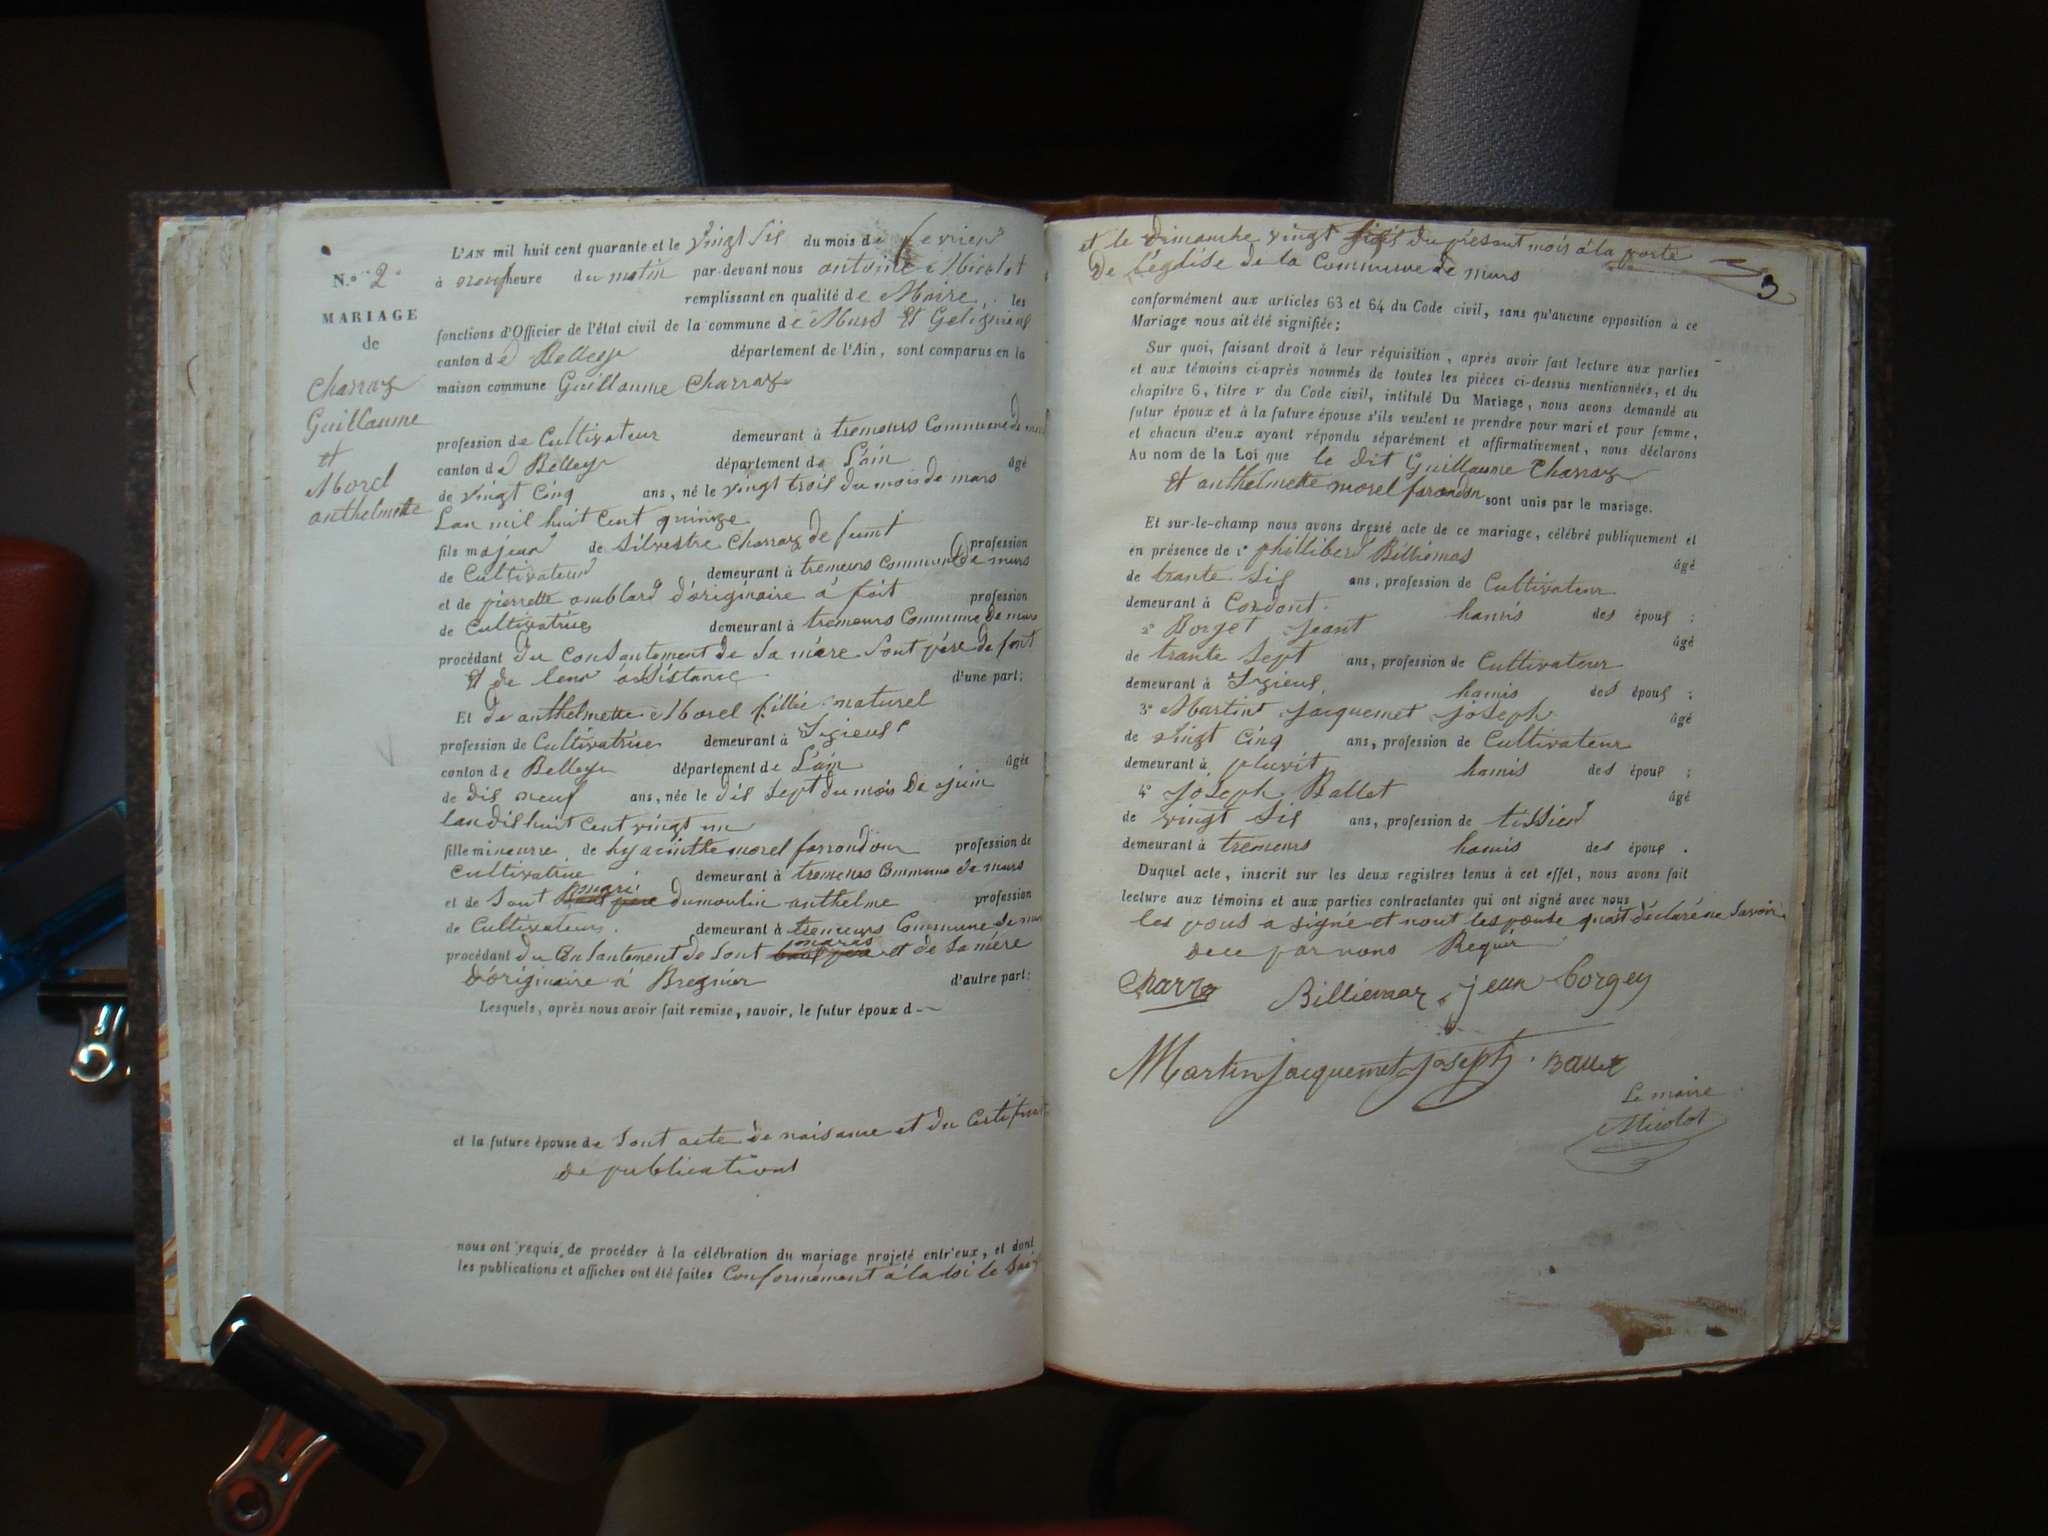 L'AN mil huit cent quarante et le vingt sis du mois de fevrier
N.º 2 à neuf heure du matin par-devant nous antoine Micolot
remplissant en qualité de Maire, les
MARIAGE
de
fonctions d'Officier de l'état civil de la commune de Murs et Gelignieux
canton de Belley département de l'Ain, sont comparus en la
maison commune Guillaume Charraz
Charraz
Guillaume
et
Morel
anthelmette
profession de Cultivateur demeurant à tremurs Commune de murs
canton de Belley département de L'ain âgé
de vingt Cinq ans, né le vingt trois du mois de mars
Lan mil huit Cent quinze
fils majeur de Silvestre Charraz de funt profession
de Cultivateur demeurant à tremeurs Commune de murs
et de pierrette amblard d'originaire à fait profession
de Cultivatrice demeurant à tremeurs Commune de murs
procédant du Consantement de Sa mére Sont pére de font
et de leur assistance d'une part;
Et de anthelmette Morel fillie naturel
profession de Cultivatrice demeurant à Izieus
canton de Belley département de L'ain âgée
de dis neuf ans, née le dis Sept du mois De ajuin
lan dishuit Cent vingt un
fille mineurre de hyacinthe morel farrondon profession de
Cultivatrice demeurant à tremeurs Commune de murs
et de Sont mari dumoulin anthelme profession
de Cultivateur. demeurant à tremeurs Commune de murs
procédant du Consantement de Sont et de Sa mére
D'originaire à Bregnier d'autre part:
Lesquels, après nous avoir fait remise, savoir, le futur époux d
et la future épouse de Sont acte de naisanse et du Certificat
de publications
nous ont requis de procéder à la célébration du mariage projeté entr'eux, et dont
les publications et affiches ont été faites Conformément à la Loi le
et le dimanche vingt du présant mois à la porte
De l'églisse de la Commune de murs
3
conformément aux articles 63 et 64 du Code civil, sans qu'aucune opposition à ce
Mariage nous ait été signifiée;
Sur quoi, faisant droit à leur réquisition, après avoir fait lecture aux parties
et aux témoins ci-après nommés de toutes les pièces ci-dessus mentionnées, et du
chapitre 6, titre v du Code civil, intitulé Du Mariage, nous avons demandé au
futur époux et à la future épouse s'ils veulent se prendre pour mari et pour femme,
et chacun d'eux ayant répondu séparément et affirmativement, nous déclarons
Au nom de la Loi que le dit Guillaume Charraz
et anthelmette morel farondon sont unis par le mariage.
Et sur-le-champ nous avons dressé acte de ce mariage, célébré publiquement et
en présence de 1º philliberd Billiemas âgé
de trante Sis ans, profession de Cultivateur
demeurant à Cordont. hamis des épous ;
2º Borget Jeant âgé
de trante Sept ans, profession de Cultivateur
demeurant à Izieus hamis des épous ;
3º Martint Jacquemet Joseph âgé
de vingt Cinq ans, profession de Cultivateur
demeurant à pluvit hamis des épous ;
4º Joseph Ballet âgé
de vingt Sis ans, profession de tissier
demeurant à tremeurs hamis des épous .
Duquel acte, inscrit sur les deux registres tenus à cet effet, nous avons fait
lecture aux témoins et aux parties contractantes qui ont signé avec nous
les pous a signé et nont lespouse quait déclaré ne Savoir
dece par nous Requis
Charraz Billiemaz jean borgey
Martin jacquemet joseph
Le maire
Micolot